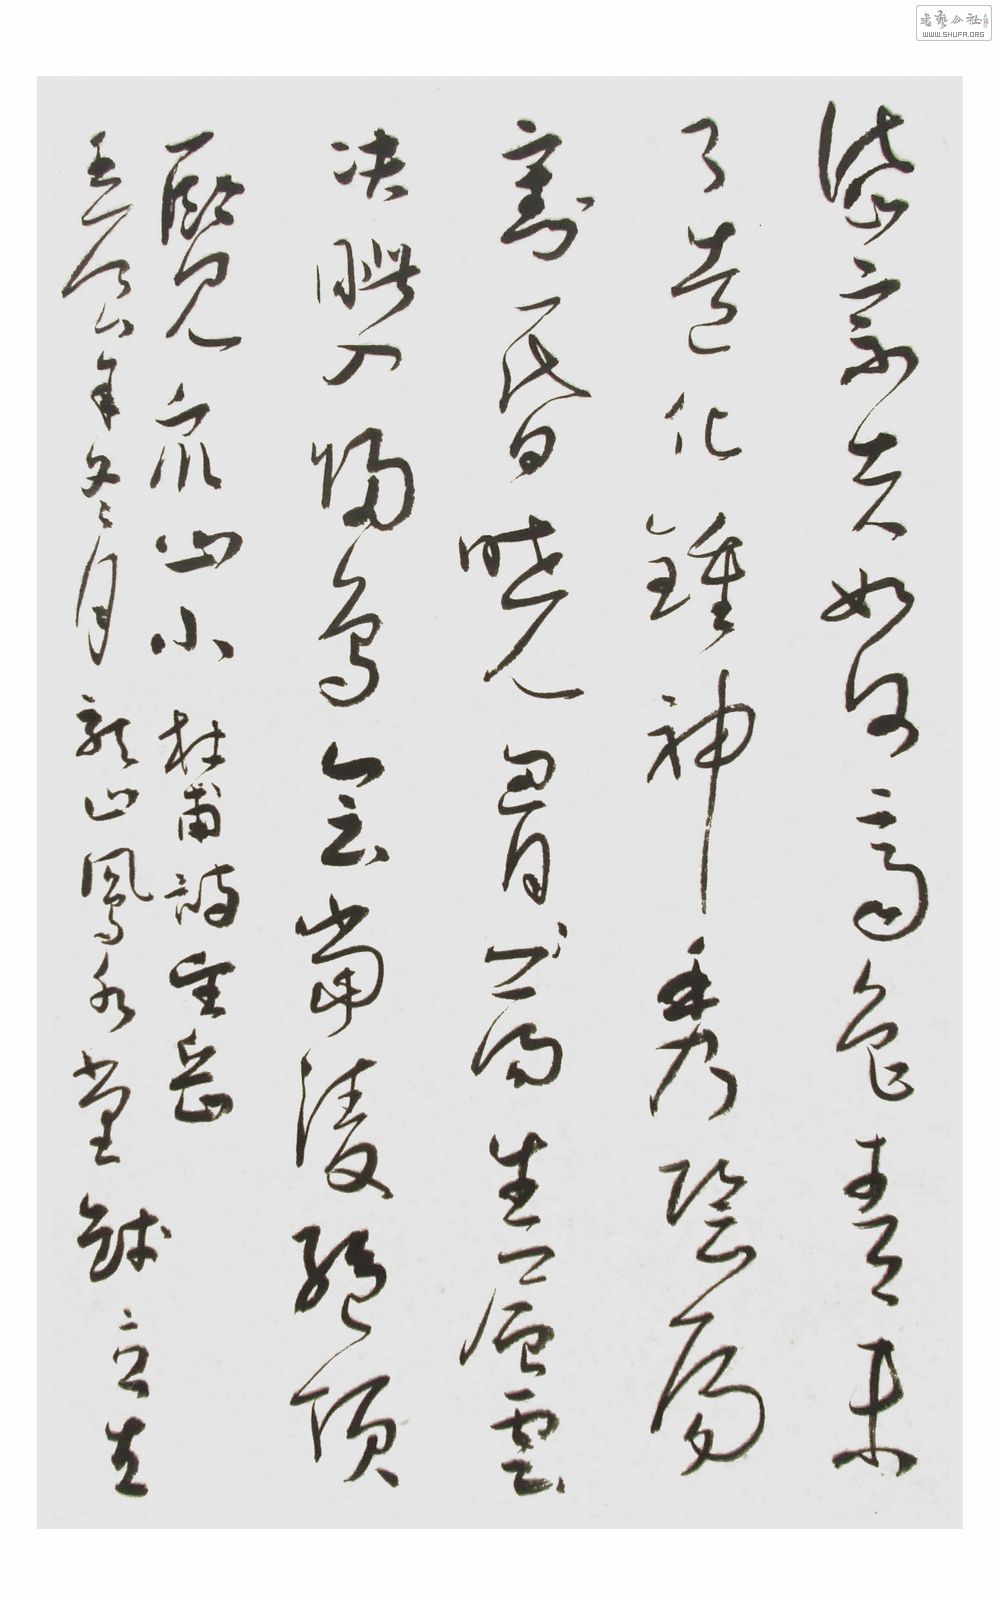 岱宗夫如何齊魯青未
了造化鍾神秀陰陽
割昏曉胷蕩生層雲
决眥入歸鳥會當凌絕頂
一覽眾山小 杜甫詩望岳
年冬月 龍山鳳水堂 立生
書藝公社
WWW.SHUFA.ORG